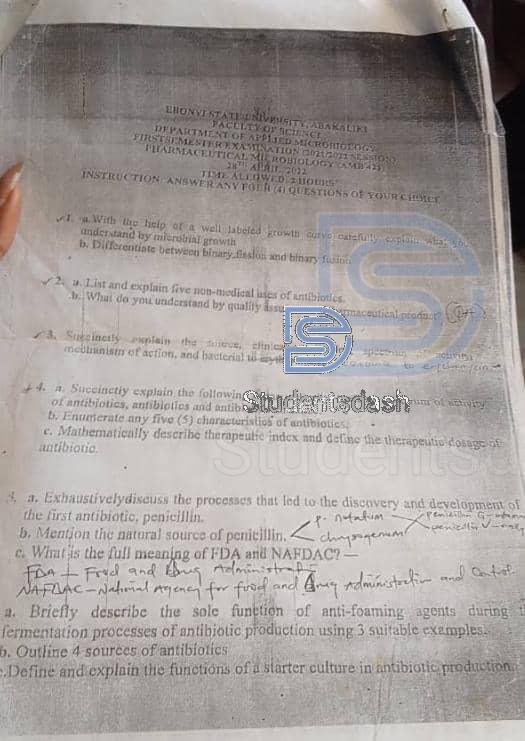 EBONYI STATE UNIVERSITY, ABAKALIKI
FACULTY OF SCIENCE
DEPARTMENT OF APPLIED MICROBIOLOGY
FIRST SEMESTER EXAMINATION (2021/2022 SESSION)
PHARMACEUTICAL MICROBIOLOGY (AMB 423)
28TH APRIL, 2022
TIME ALLOWED: 2 HOURS
INSTRUCTION: ANSWER ANY FOUR (4) QUESTIONS OF YOUR CHOICE
1. a. With the help of a well labeled growth curve carefully explain what you
understand by microbial growth
b. Differentiate between binary fission and binary fusion
2. a. List and explain five non-medical uses of antibiotics.
b. What do you understand by quality pharmaceutical product?
3. Succinctly explain the source, spectrum activity
mechanism of action, and bacterial to erythromycin
4. a. Succinctly explain the following of activity
of antibiotics, antibiotics and
Studentsdash
b. Enumerate any five (5) characteristics of antibiotics.
c. Mathematically describe therapeutic index and define the therapeutic dosage of
antibiotic.
a. Exhaustively discuss the processes that led to the discovery and development of
the first antibiotic, penicillin.
P. notatum
penicillin G
b. Mention the natural source of penicillin.
chrysogenum
penicillin V
c. What is the full meaning of FDA and NAFDAC?
FDA - Food and Drug Administrati
NAFDAC - National Agency for food and Drug Administration and Control
a. Briefly describe the sole function of anti-foaming agents during
fermentation processes of antibiotic production using 3 suitable examples.
b. Outline 4 sources of antibiotics
c. Define and explain the functions of a starter culture in antibiotic production.